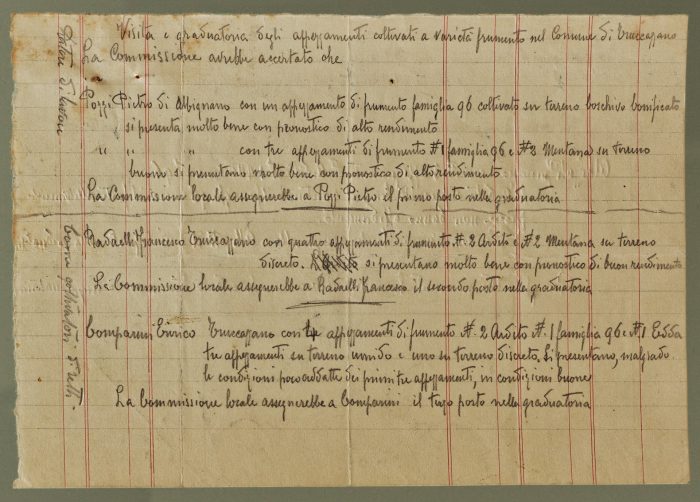 Visita e graduatoria degli appezzamenti coltivati a varietà frumento nel Comune di Truccazzano
La Commissione avrebbe accertato che
Pozzi Pietro di Albignano con un appezzamento di frumento famiglia 96 coltivato su terreno boschivo bonificato
si presenta molto bene con pronostico di alto rendimento
" " " con tre appezzamenti di frumento N° 1 famiglia 96 e N° 2 Mentana su terreno
buono si presentano molto bene con pronostico di alto rendimento
La Commissione locale assegnerebbe a Pozzi Pietro il primo posto nella graduatoria
Radaelli Francesco Truccazzano con quattro appezzamenti di frumento N° 2 Ardito e N° 2 Mentana su terreno
discreto. si presentano molto bene con pronostico di buon rendimento
La Commissione locale assegnerebbe a Radaelli Francesco il secondo posto nella graduatoria
Comparini Enrico Truccazzano con appezzamenti di frumento N° 2 Ardito N° 1 famiglia 96 e N° 1 Edda
tre appezzamenti su terreno umido e uno su terreno discreto. Si presentano, malgrado
le condizioni poco addatte dei primi tre appezzamenti, in condizioni buone
La Commissione locale assegnerebbe a Comparini il terzo posto nella graduatoria
di